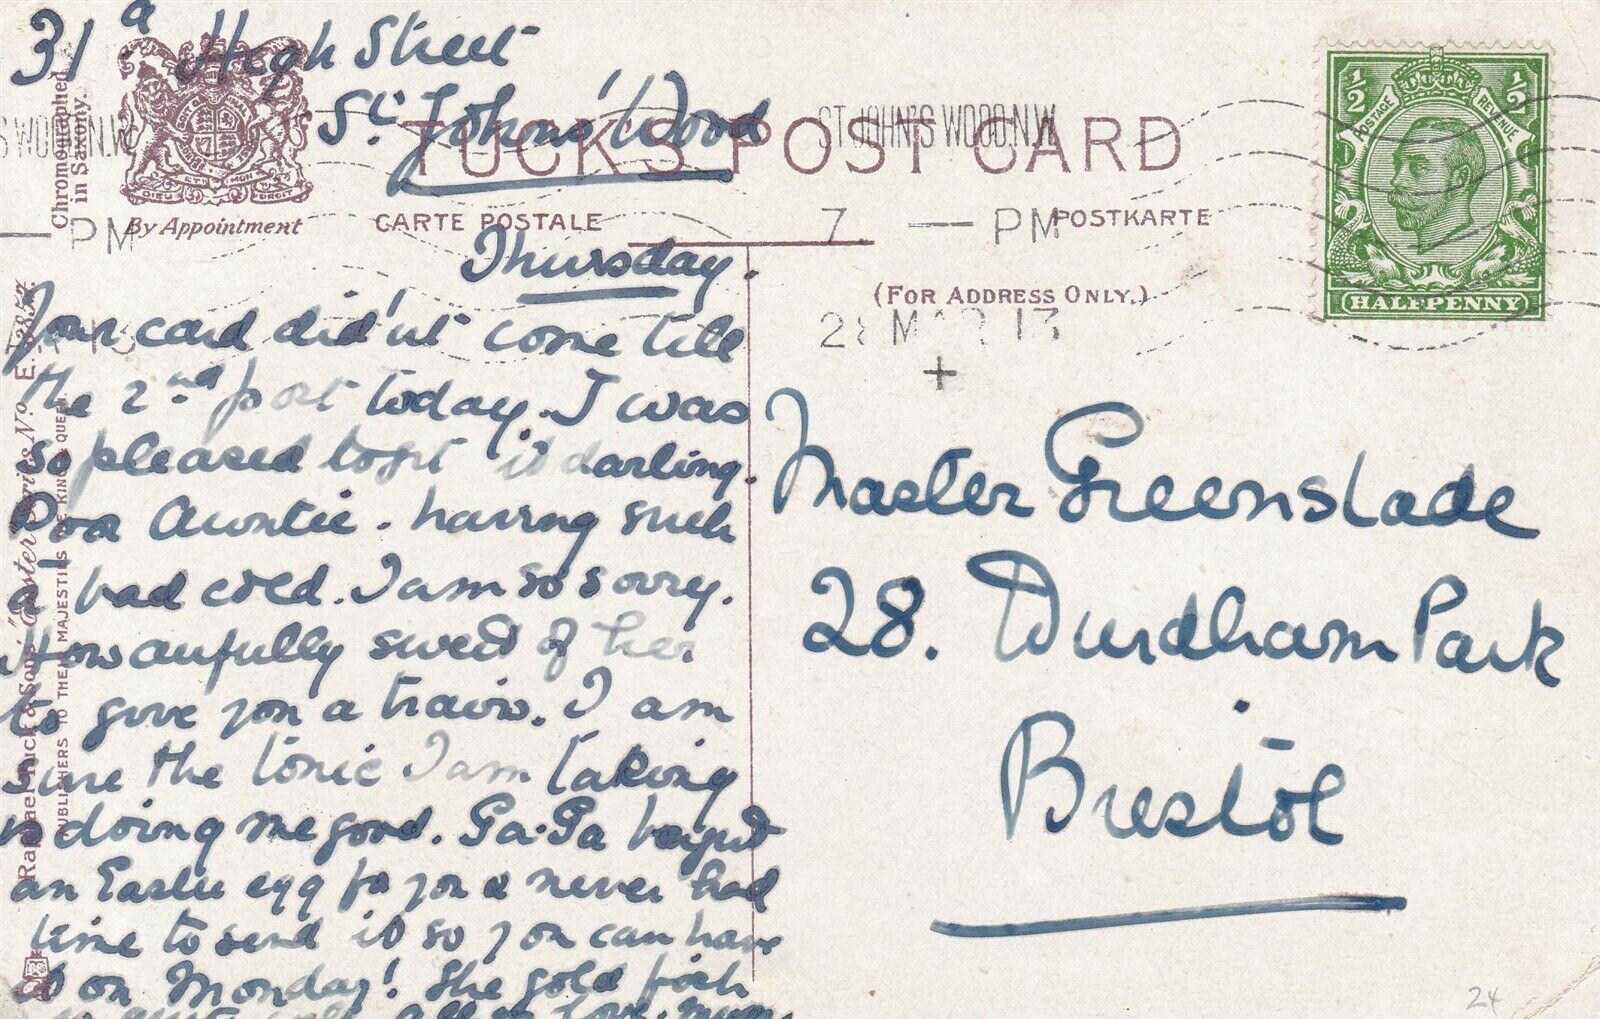 31a High Street
St Johns' Wood
Chromographed
in Saxony.
DIEU ET MON DROIT
By Appointment
TUCK'S POST CARD
CARTE POSTALE
POSTKARTE
(FOR ADDRESS ONLY.)
S WOOD. N.W.
PM
ST JOHN'S WOOD. N.W.
7. — PM
28 MAR 13
+
½ ½
POSTAGE REVENUE
HALFPENNY
Thursday.
Your card did'nt come till
the 2nd post today. I was
so pleased to get it darling.
Poor Auntie. having such
a bad cold. I am so sorry.
How awfully sweet of her
to give you a train. I am
sure the tonic I am taking
is doing me good. Ga-Ga bought
an Easter egg for you & never had
time to send it so you can have
it on Monday! The gold fish
All love. Mum
Master Greenslade
28. Durdham Park
Bristol
Raphael Tuck & Sons' "Easter" Series No. E.
PUBLISHERS TO THEIR MAJESTIES THE KING & QUEEN
24